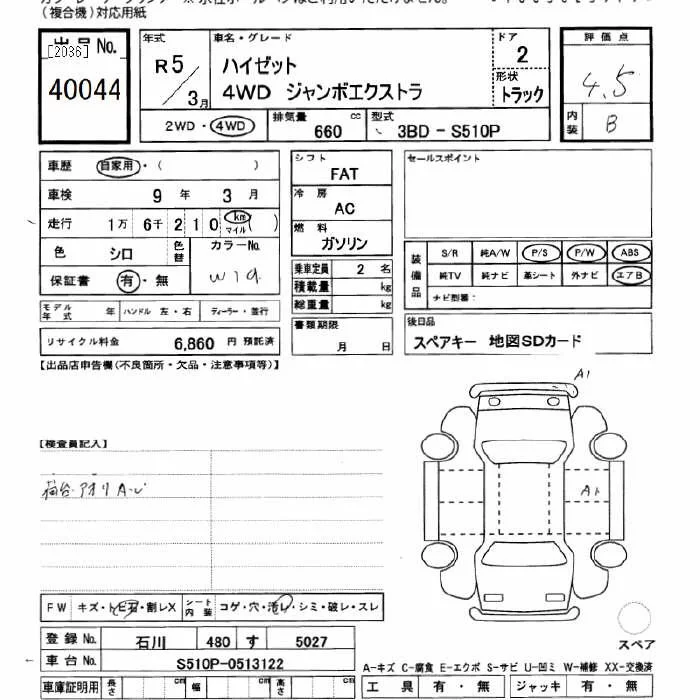 (複合機)対応用紙
出品No.
[2036]
40044
年式
R5/3月
車名・グレード
ハイゼット
4WD ジャンボエクストラ
ドア
2
形状
トラック
2WD・4WD
排気量
660 cc
型式
3BD-S510P
評価点
4.5
内装
B
車歴 自家用・( )
車検 9年 3月
走行 1万 6千 2 1 0 km マイル ( )
色 シロ
色替
カラーNo.
W19
保証書 有・無
モデル年式 年 ハンドル 左・右 ディーラー・並行
リサイクル料金 6,860 円 預託済
シフト
FAT
冷房
AC
燃料
ガソリン
乗車定員 2 名
積載量 kg
総重量 kg
書類期限
月 日
セールスポイント
装備品
S/R 純A/W P/S P/W ABS
純TV 純ナビ 革シート 外ナビ エアB
ナビ型番:
後日品
スペアキー 地図SDカード
【出品店申告欄(不良箇所・欠品・注意事項等)】
【検査員記入】
荷台.アオリ A-U
A1
A1
スペア
FW キズ・トビ石・割レX シート内装 コゲ・穴・汚レ・シミ・破レ・スレ
登録No. 石川 480 す 5027
車台No. S510P-0513122
車庫証明用 長さ cm 幅 cm 高さ cm
A-キズ C-腐食 E-エクボ S-サビ U-凹ミ W-補修 XX-交換済
工具 有・無 ジャッキ 有・無